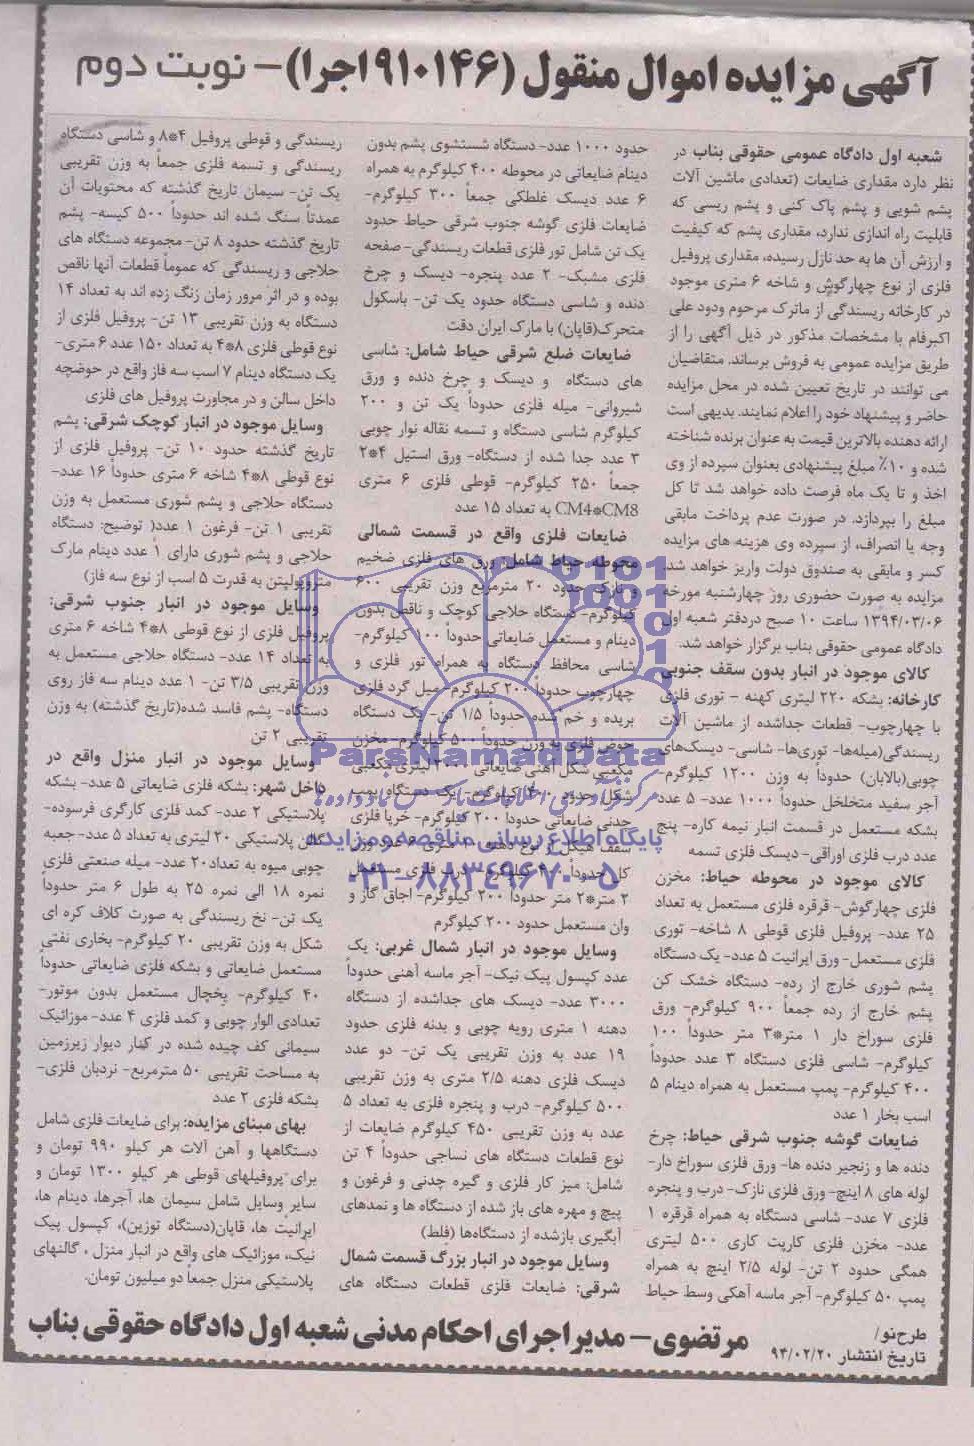 آگهی مزایده اموال منقول (۹۱۰۱۴۶اجرا)- نوبت دوم
شعبه اول دادگاه عمومی حقوقی بناب در
نظر دارد مقداری ضایعات (تعدادی ماشین آلات
پشم شویی و پشم پاک کنی و پشم ریسی که
قابلیت راه اندازی ندارد، مقداری پشم که کیفیت
و ارزش آن ها به حد نازل رسیده، مقداری پروفیل
فلزی از نوع چهارگوش و شاخه ۶ متری موجود
در کارخانه ریسندگی از ماترک مرحوم ودود علی
اکبرفام با مشخصات مذکور در ذیل آگهی را از
طریق مزایده عمومی به فروش برساند. متقاضیان
می توانند در تاریخ تعیین شده در محل مزایده
حاضر و پیشنهاد خود را اعلام نمایند. بدیهی است
ارائه دهنده بالاترین قیمت به عنوان برنده شناخته
شده و ۱۰٪ مبلغ پیشنهادی بعنوان سپرده از وی
اخذ و تا یک ماه فرصت داده خواهد شد تا کل
مبلغ را بپردازد. در صورت عدم پرداخت مابقی
وجه یا انصراف، از سپرده وی هزینه های مزایده
کسر و مابقی به صندوق دولت واریز خواهد شد.
مزایده به صورت حضوری روز چهارشنبه مورخه
۱۳۹۴/۰۳/۰۶ ساعت ۱۰ صبح دردفتر شعبه اول
دادگاه عمومی حقوقی بناب برگزار خواهد شد.
کالای موجود در انبار بدون سقف جنوبی
کارخانه: بشکه ۲۲۰ لیتری کهنه - توری فلزی
با چهارچوب- قطعات جداشده از ماشین آلات
ریسندگی(میله‌ها- توری‌ها- شاسی- دیسک‌های
چوبی(یالابان) حدوداً به وزن ۱۲۰۰ کیلوگرم-
آجر سفید متخلخل حدوداً ۱۰۰۰ عدد- ۵ عدد
بشکه مستعمل در قسمت انبار نیمه کاره- پنج
عدد درب فلزی اوراقی- دیسک فلزی تسمه
کالای موجود در محوطه حیاط: مخزن
فلزی چهارگوش- قرقره فلزی مستعمل به تعداد
۲۵ عدد- پروفیل فلزی قوطی ۸ شاخه- توری
فلزی مستعمل- ورق ایرانیت ۵ عدد- یک دستگاه
پشم شوری خارج از رده- دستگاه خشک کن
پشم خارج از رده جمعاً ۹۰۰ کیلوگرم- ورق
فلزی سوراخ دار ۱ متر*۳ متر حدوداً ۱۰۰
کیلوگرم- شاسی فلزی دستگاه ۳ عدد حدوداً
۴۰۰ کیلوگرم- پمپ مستعمل به همراه دینام ۵
اسب بخار ۱ عدد
ضایعات گوشه جنوب شرقی حیاط: چرخ
دنده ها و زنجیر دنده ها- ورق فلزی سوراخ دار-
لوله های ۸ اینچ- ورق فلزی نازک- درب و پنجره
فلزی ۷ عدد- شاسی دستگاه به همراه قرقره ۱
عدد- مخزن فلزی کاریت کاری ۵۰۰ لیتری
همگی حدود ۲ تن- لوله ۲/۵ اینچ به همراه
پمپ ۵۰ کیلوگرم- آجر ماسه آهکی وسط حیاط
حدود ۱۰۰۰ عدد- دستگاه شستشوی پشم بدون
دینام ضایعاتی در محوطه ۴۰۰ کیلوگرم به همراه
۶ عدد دیسک غلطکی جمعاً ۳۰۰ کیلوگرم-
ضایعات فلزی گوشه جنوب شرقی حیاط حدود
یک تن شامل تور فلزی قطعات ریسندگی- صفحه
فلزی مشبک- ۲ عدد پنجره- دیسک و چرخ
دنده و شاسی دستگاه حدود یک تن- باسکول
متحرک(قاپان) با مارک ایران دقت
ضایعات ضلع شرقی حیاط شامل: شاسی
های دستگاه و دیسک و چرخ دنده و ورق
شیروانی- میله فلزی حدوداً یک تن و ۲۰۰
کیلوگرم شاسی دستگاه و تسمه نقاله نوار چوبی
۳ عدد جدا شده از دستگاه- ورق استیل ۴*۲
جمعاً ۲۵۰ کیلوگرم- قوطی فلزی ۶ متری
CM4*CM8 به تعداد ۱۵ عدد
ضایعات فلزی واقع در قسمت شمالی
محوطه حیاط شامل: ورق های فلزی ضخیم
و نازک حدود ۲۰ مترمربع وزن تقریبی ۶۰۰
کیلوگرم- دستگاه حلاجی کوچک و ناقص بدون
دینام و مستعمل ضایعاتی حدوداً ۱۰۰ کیلوگرم-
شاسی محافظ دستگاه به همراه تور فلزی و
چهارچوب حدوداً ۲۰۰ کیلوگرم- میل گرد فلزی
بریده و خم شده حدوداً ۱/۵ تن- یک دستگاه
حوض فلزی به وزن حدوداً ۵۰۰ کیلوگرم- مخزن
مکعبی شکل آهنی ضایعاتی لیتری
حدود ۴۰۰ کیلوگرم- یک دستگاه پمپ
چدنی ضایعاتی حدوداً ۲۰۰ کیلوگرم- خرپا فلزی
سقف
کلا حدوداً کیلوگرم- درب فلزی مستعمل
۲ متر*۲ متر حدوداً ۲۰۰ کیلوگرم- اجاق گاز و
وان مستعمل حدود ۲۰۰ کیلوگرم
وسایل موجود در انبار شمال غربی: یک
عدد کپسول پیک نیک- آجر ماسه آهنی حدوداً
۳۰۰۰ عدد- دیسک های جداشده از دستگاه
دهنه ۱ متری رویه چوبی و بدنه فلزی حدود
۱۹ عدد به وزن تقریبی یک تن- دو عدد
دیسک فلزی دهنه ۲/۵ متری به وزن تقریبی
۵۰۰ کیلوگرم- درب و پنجره فلزی به تعداد ۵
عدد به وزن تقریبی ۴۵۰ کیلوگرم ضایعات از
نوع قطعات دستگاه های نساجی حدوداً ۴ تن
شامل: میز کار فلزی و گیره چدنی و فرغون و
پیچ و مهره های باز شده از دستگاه ها و نمدهای
آبگیری بازشده از دستگاه‌ها (فلط)
وسایل موجود در انبار بزرگ قسمت شمال
شرقی: ضایعات فلزی قطعات دستگاه های
ریسندگی و قوطی پروفیل ۴*۸ و شاسی دستگاه
ریسندگی و تسمه فلزی جمعاً به وزن تقریبی
یک تن- سیمان تاریخ گذشته که محتویات آن
عمدتاً سنگ شده اند حدوداً ۵۰۰ کیسه- پشم
تاریخ گذشته حدود ۸ تن- مجموعه دستگاه های
حلاجی و ریسندگی که عموماً قطعات آنها ناقص
بوده و در اثر مرور زمان زنگ زده اند به تعداد ۱۴
دستگاه به وزن تقریبی ۱۳ تن- پروفیل فلزی از
نوع قوطی فلزی ۸*۴ به تعداد ۱۵۰ عدد ۶ متری-
یک دستگاه دینام ۷ اسب سه فاز واقع در حوضچه
داخل سالن و در مجاورت پروفیل های فلزی
وسایل موجود در انبار کوچک شرقی: پشم
تاریخ گذشته حدود ۱۰ تن- پروفیل فلزی از
نوع قوطی ۸*۴ شاخه ۶ متری حدوداً ۱۶ عدد-
دستگاه حلاجی و پشم شوری مستعمل به وزن
تقریبی ۱ تن- فرغون ۱ عدد( توضیح: دستگاه
حلاجی و پشم شوری دارای ۱ عدد دینام مارک
متروپولیتن به قدرت ۵ اسب از نوع سه فاز)
وسایل موجود در انبار جنوب شرقی:
پروفیل فلزی از نوع قوطی ۸*۴ شاخه ۶ متری
به تعداد ۱۴ عدد- دستگاه حلاجی مستعمل به
وزن تقریبی ۳/۵ تن- ۱ عدد دینام سه فاز روی
دستگاه- پشم فاسد شده(تاریخ گذشته) به وزن
تقریبی ۲ تن
وسایل موجود در انبار منزل واقع در
داخل شهر: بشکه فلزی ضایعاتی ۵ عدد- بشکه
پلاستیکی ۲ عدد- کمد فلزی کارگری فرسوده-
گالن پلاستیکی ۲۰ لیتری به تعداد ۵ عدد- جعبه
چوبی میوه به تعداد۲۰ عدد- میله صنعتی فلزی
نمره ۱۸ الی نمره ۲۵ به طول ۶ متر حدوداً
یک تن- نخ ریسندگی به صورت کلاف کره ای
شکل به وزن تقریبی ۲۰ کیلوگرم- بخاری نفتی
مستعمل ضایعاتی و بشکه فلزی ضایعاتی حدوداً
۴۰ کیلوگرم- یخچال مستعمل بدون موتور-
تعدادی الوار چوبی و کمد فلزی ۴ عدد- موزائیک
سیمانی کف چیده شده در کنار دیوار زیرزمین
به مساحت تقریبی ۵۰ مترمربع- نردبان فلزی-
بشکه فلزی ۲ عدد
بهای مبنای مزایده: برای ضایعات فلزی شامل
دستگاهها و آهن آلات هر کیلو ۹۹۰ تومان و
برای پروفیلهای قوطی هر کیلو ۱۳۰۰ تومان و
سایر وسایل شامل سیمان ها، آجرها، دینام ها،
ایرانیت ها، قاپان(دستگاه توزین)، کپسول پیک
نیک، موزائیک های واقع در انبار منزل ، گالنهای
پلاستیکی منزل جمعاً دو میلیون تومان.
مرتضوی- مدیر اجرای احکام مدنی شعبه اول دادگاه حقوقی بناب
طرح‌نو/
تاریخ انتشار ۹۴/۰۲/۲۰
ParsNamadData
پایگاه اطلاع رسانی مناقصه و مزایده
۰۲۱-۸۸۳۴۹۶۷۰-۵